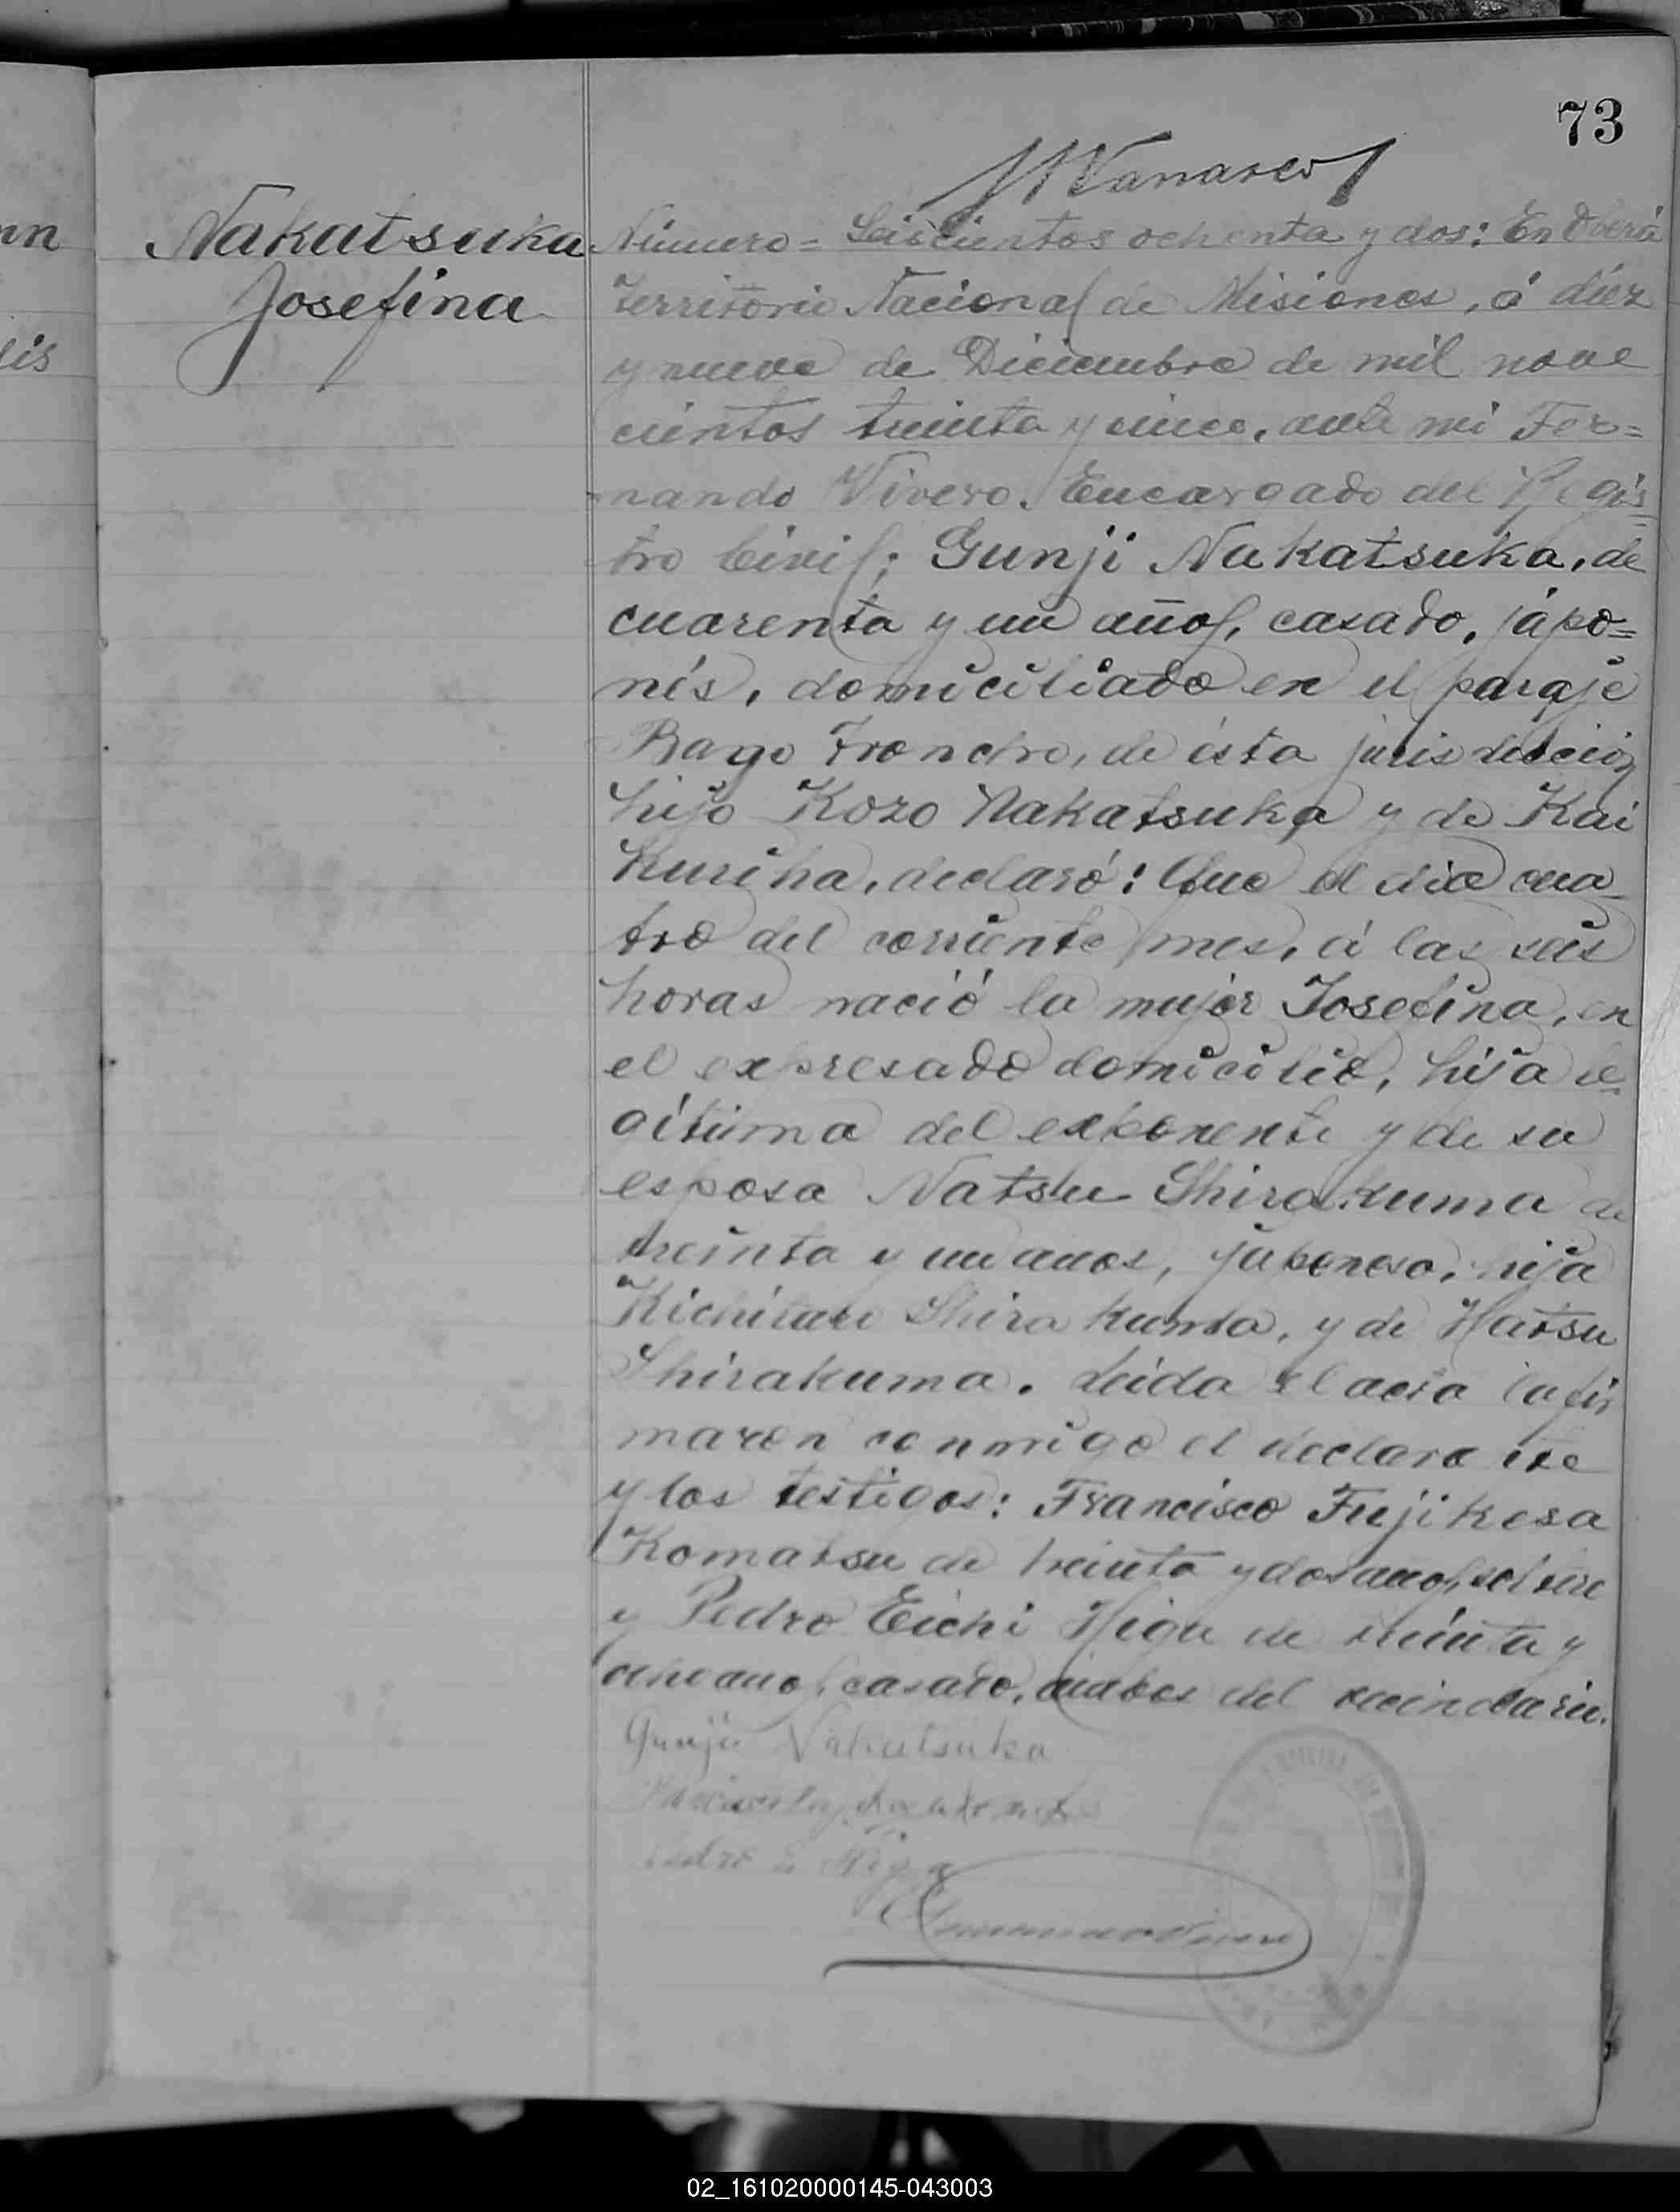 73
Nakatsuka
Josefina
nn
lis
Número = Seiscientos ochenta y dos: En Oberá
Territorio Nacional de Misiones, á diez
y nueve de Diciembre de mil nove
cientos treinta y cinco, ante mi Fer=
nando Vivero, Encargado del Regis=
tro Civil; Gunji Nakatsuka, de
cuarenta y un años, casado, japo=
nés, domiciliado en el paraje
Bago Troncho, de ésta jurisdiccion
hijo Kozo Nakatsuka y de Kai
Kuriha, declaró: Que el dia cua
tro del corriente mes, á las seis
horas nació la mujer Josefina, en
el expresado domicilio, hija le
gítima del exponente y de su
esposa Natsu Shirakuma de
treinta y un anos, japonesa, hija
Shirakuma, y de Hatsu
Shirakuma. Leida el acta la fir
maron conmigo el declarante
y los testigos: Francisco Fujikesa
Komatsu de treinta y dos años, soltero
y Pedro Eichi Higa de treinta y
ocho anos, casado, ambos del vecindario.
Gunji Nakatsuka
Pedro E Higa
02_161020000145-043003